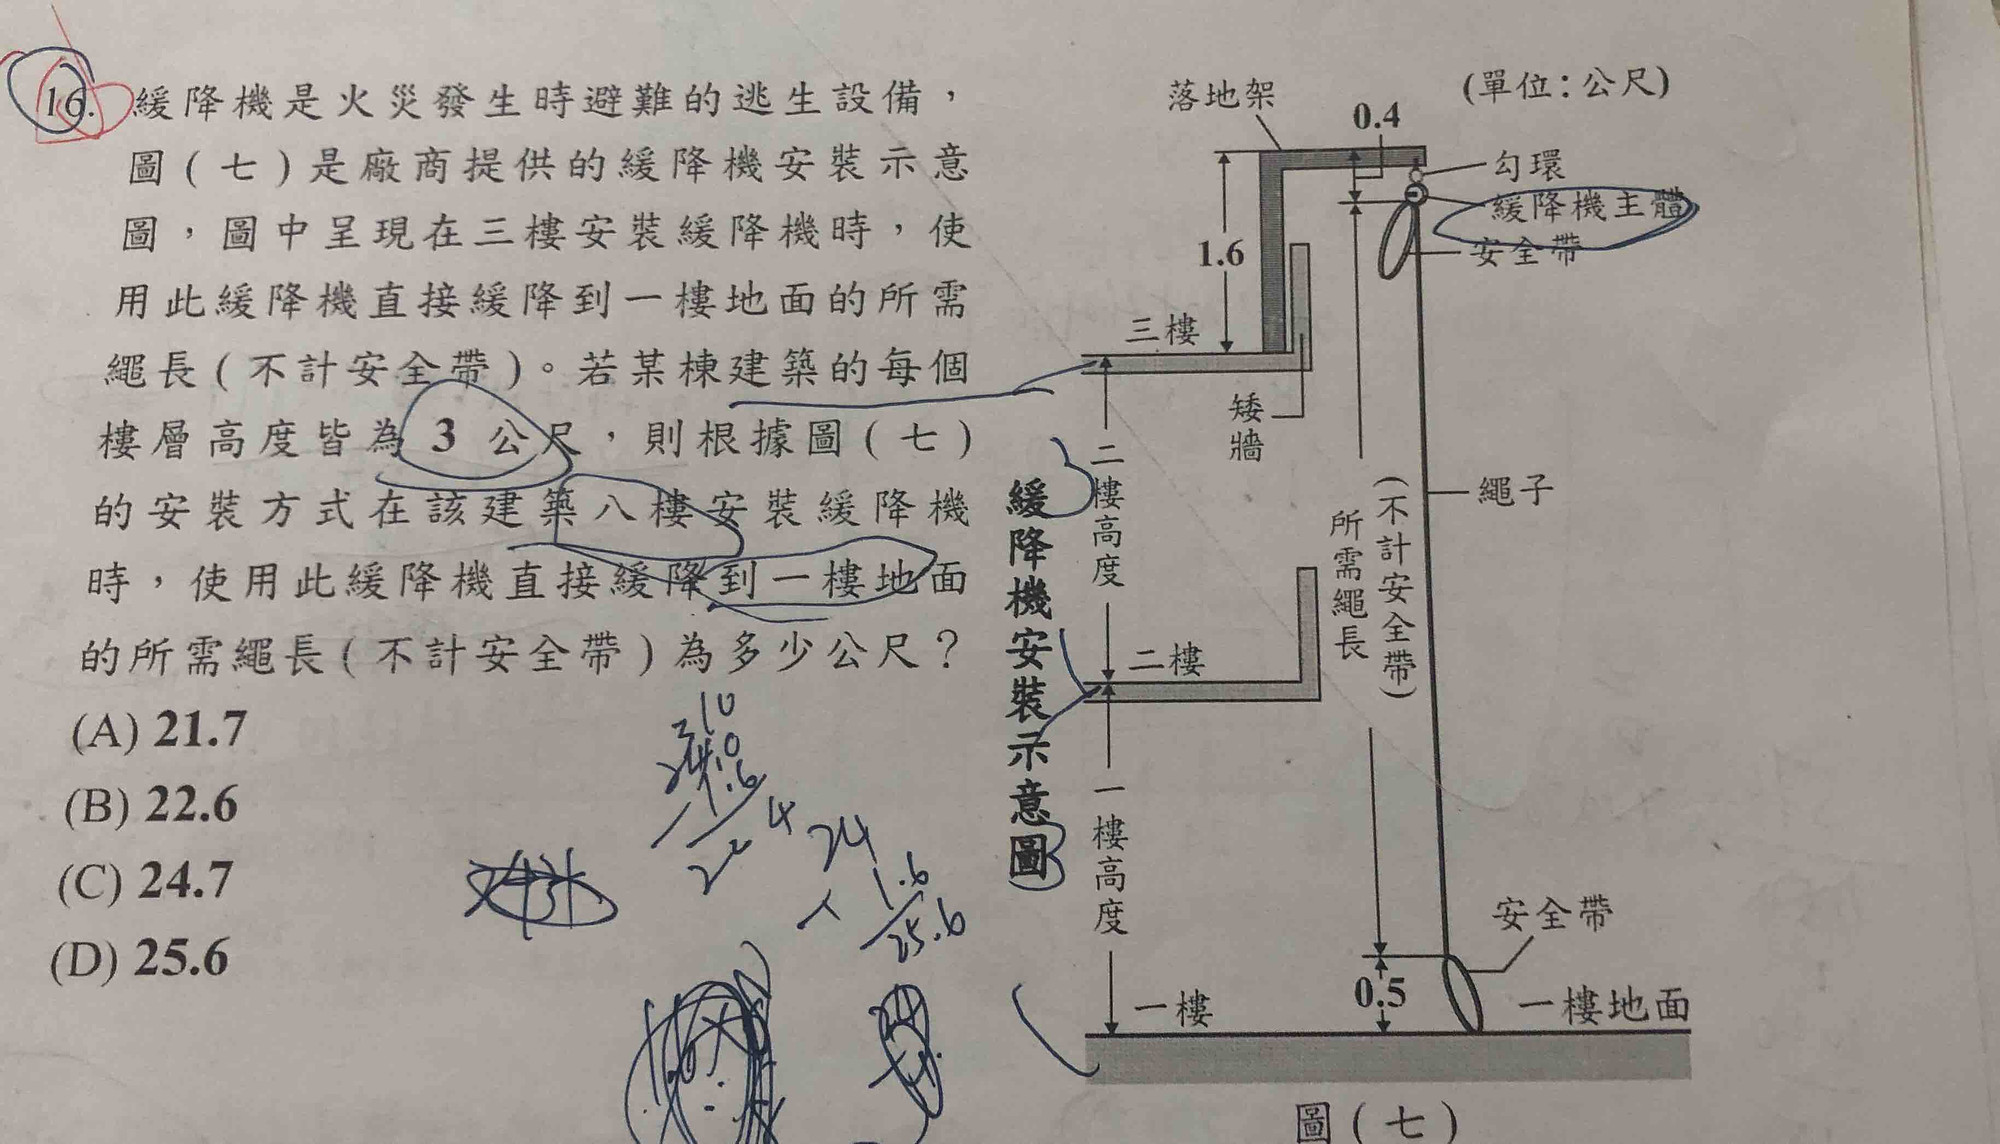 16. 緩降機是火災發生時避難的逃生設備，
圖(七)是廠商提供的緩降機安裝示意
圖，圖中呈現在三樓安裝緩降機時，使
用此緩降機直接緩降到一樓地面的所需
繩長(不計安全帶)。若某棟建築的每個
樓層高度皆為 3 公尺，則根據圖(七)
的安裝方式在該建築八樓安裝緩降機
時，使用此緩降機直接緩降到一樓地面
的所需繩長(不計安全帶)為多少公尺？
(A) 21.7
(B) 22.6
(C) 24.7
(D) 25.6
24
1.6
25.6
緩降機安裝示意圖
(單位：公尺)
落地架
0.4
勾環
緩降機主體
安全帶
1.6
三樓
矮牆
二樓高度
繩子
所需繩長
(不計安全帶)
二樓
一樓高度
安全帶
0.5
一樓
一樓地面
圖(七)